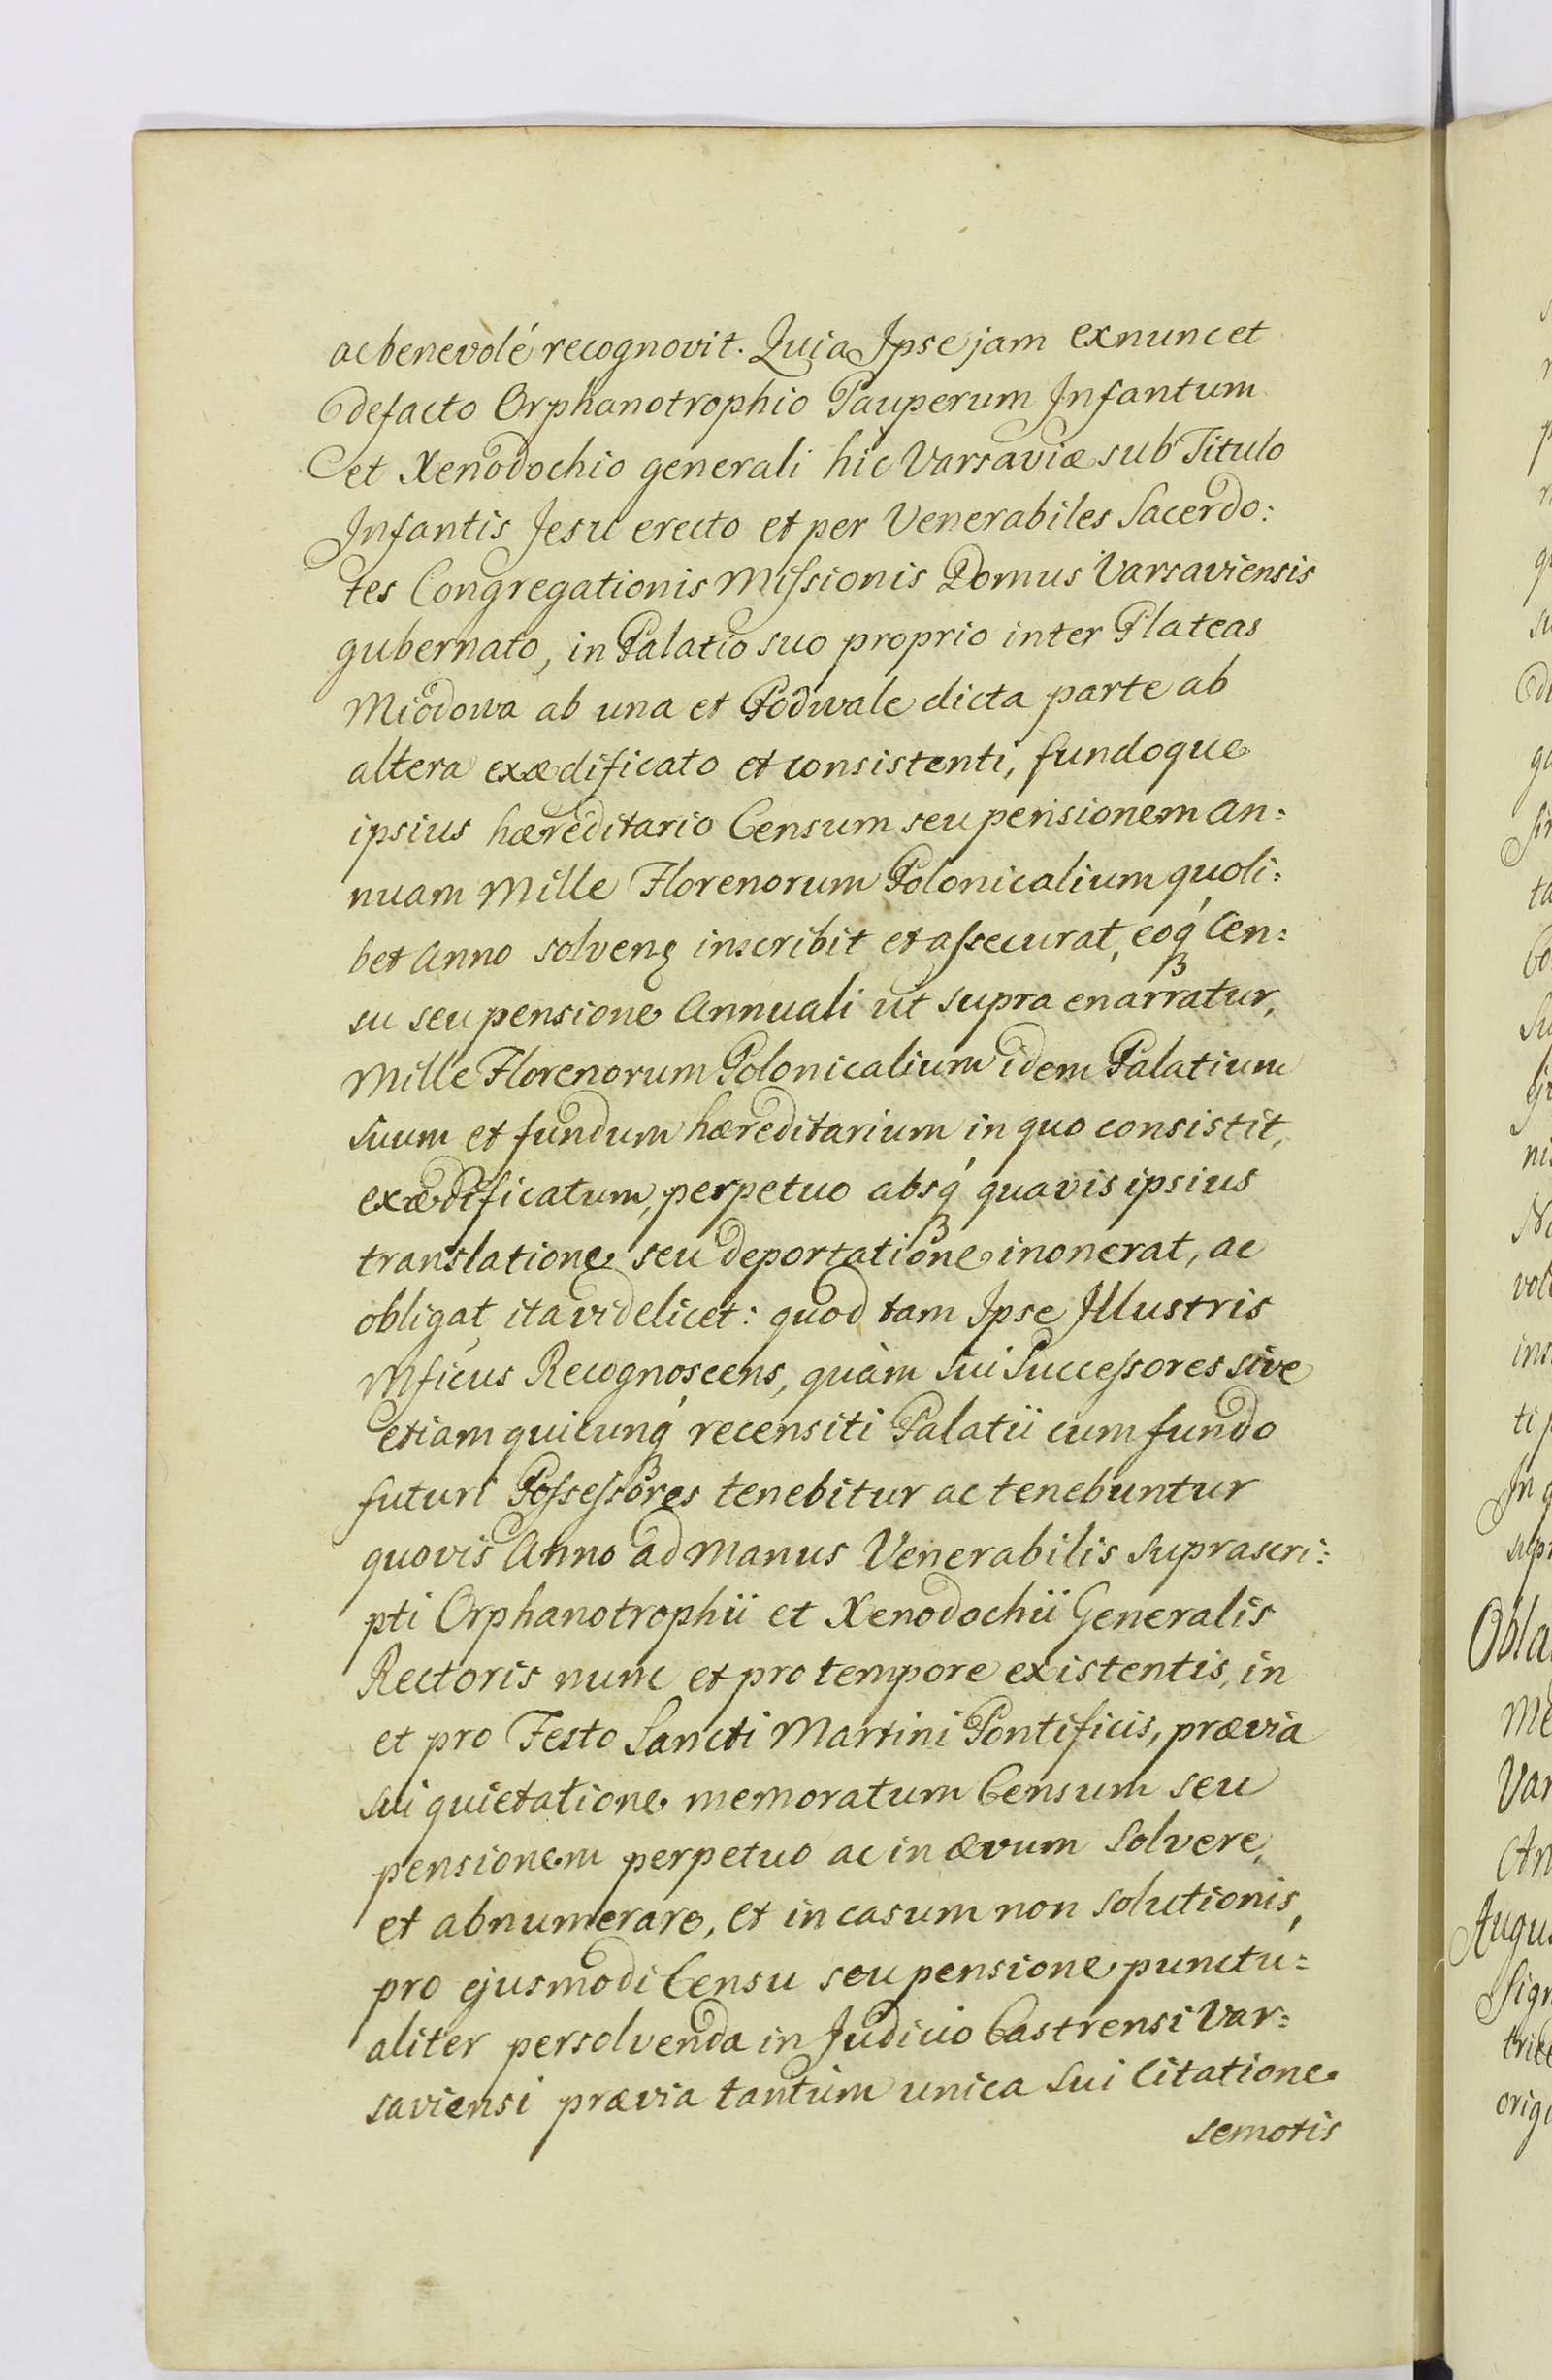 ac benevolé recognovit. Quia Ipse jam ex nunc et
de facto Orphanotrophio Pauperum Infantum
et Xenodochio generali hic Varsaviæ sub Titulo
Infantis Jesu erecto et per Venerabiles Sacerdo:
tes Congregationis Missionis Domus Varsaviensis
gubernato, in Palatio suo proprio inter Plateas
Miodowa ab una et Podwale dicta parte ab
altera exædificato et consistenti, fundoque
ipsius hæreditario Censum seu pensionem an:
nuam Mille Florenorum Polonicalium quoli:
bet Anno solven inscribit et assecurat, eoq́ Cen:
su seu pensione Annuali ut supra enarratur,
Mille Florenorum Polonicalium idem Palatium
suum et fundum hæreditarium in quo consistit,
exædificatum, perpetuo absq́ quavis ipsius
translatione seu deportatione inonerat, ac
obligat, ita videlicet: quod tam Ipse Illustris
Mficus Recognoscens, quàm sui Successores sive
etiam quicunq́ recensiti Palatii cum fundo
futuri Possessores tenebitur ac tenebuntur
quovis Anno ad manus Venerabilis suprascri:
pti Orphanotrophii et Xenodochii Generalis
Rectoris nunc et pro tempore existentis, in
et pro Festo Sancti Martini Pontificis, prævia
sui quietatione memoratum Censum seu
pensionem perpetuo ac in ævum solvere,
et abnumerare, et in casum non solutionis,
pro ejusmodi Censu seu pensione punctu:
aliter persolvenda in Judicio Castrensi Var:
saviensi prævia tantum unica sui Citatione
semotis